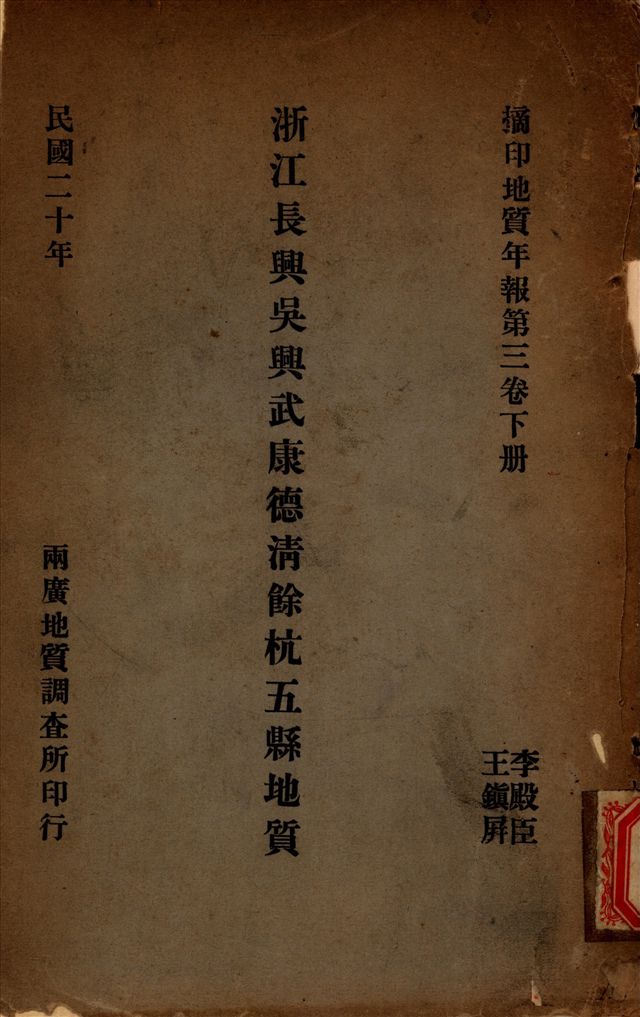 摘印地質年報第三卷下册
李殿臣
王鎭屏
浙江長興吳興武康德淸餘杭五縣地質
民國二十年
兩廣地質調查所印行